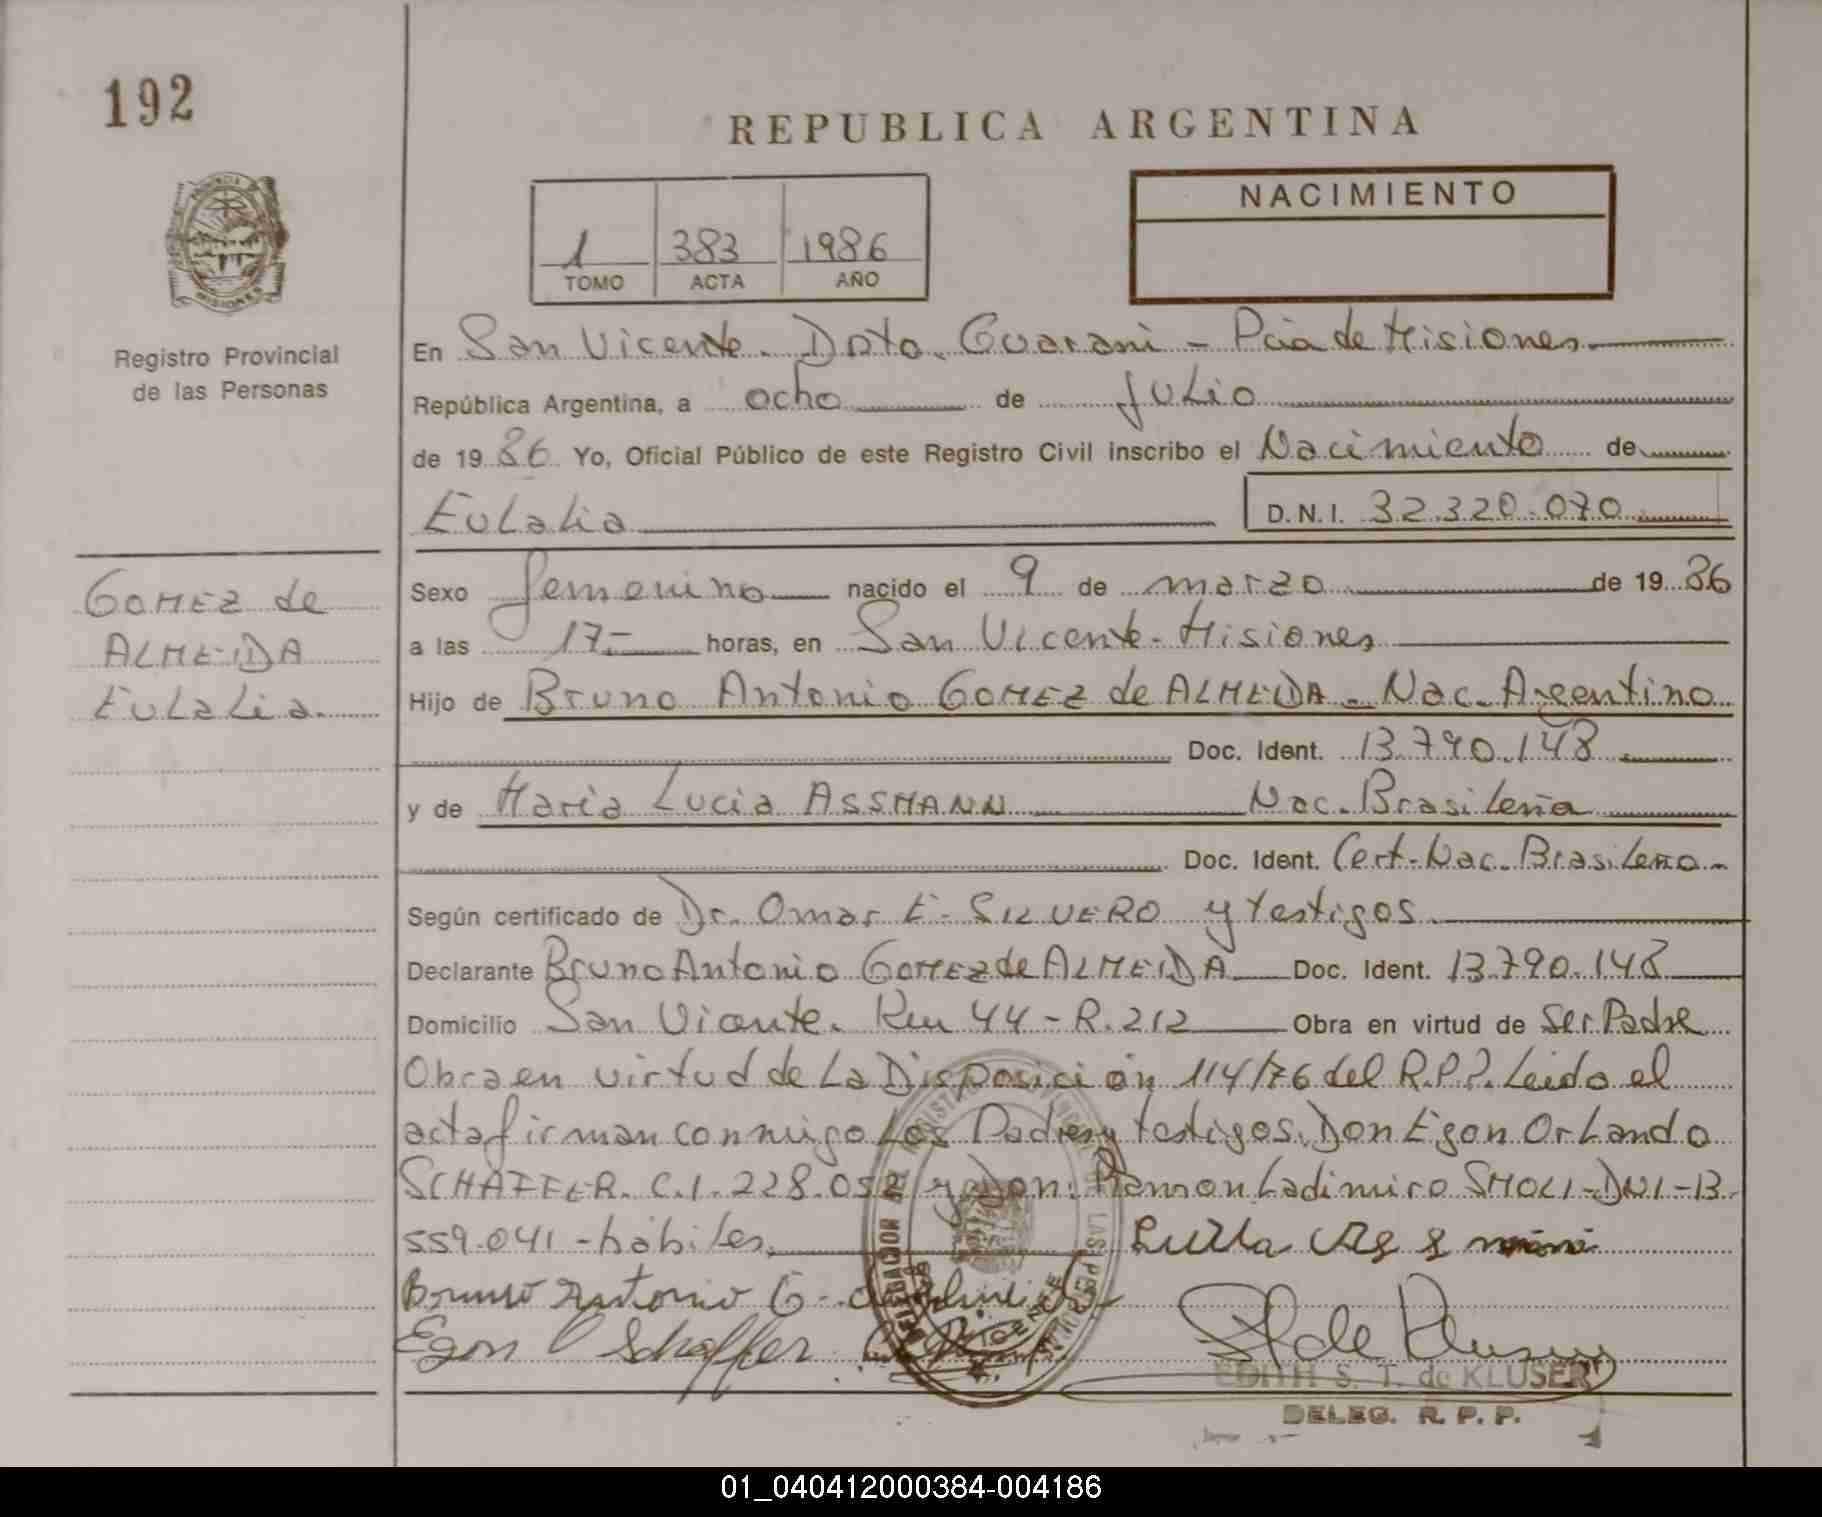 192
REPUBLICA ARGENTINA
NACIMIENTO
1 383 1986
TOMO ACTA AÑO
PROVINCIA DE MISIONES
Registro Provincial
de las Personas
En San Vicente. Dpto. Guarani - Pcia de Misiones.
República Argentina, a ocho de Julio
de 1986 Yo, Oficial Público de este Registro Civil inscribo el Nacimiento de
Eulalia D.N.I. 32.320.070
GOMEZ de
ALMEIDA
Eulalia.
Sexo femenino nacido el 9 de marzo de 1986
a las 17.- horas, en San Vicente - Misiones
Hijo de Bruno Antonio GOMEZ de ALMEIDA - Nac. Argentino
Doc. Ident. 13.790.148
y de Maria Lucia ASSMANN Nac. Brasileña
Doc. Ident. Cert. Nac. Brasileño -
Según certificado de Dr. Omar E. SILVERO y testigos.
Declarante Bruno Antonio GOMEZ de ALMEIDA Doc. Ident. 13.790.148
Domicilio San Vicente. Km 44 - R. 212 Obra en virtud de Ser Padre
Obra en virtud de La Disposición 114/76 del R.P.P. Leido el
acta firman conmigo Los Padres y testigos. Don Egon Orlando
SCHAFFER. C.I. 228.052 y Don: Ramon Ladimiro SMOLI - DNI - 13.
559.041 - habiles.
Bruno Antonio G. de Almeida
Egon O Schaffer
EDITH S. T. de KLUSER
DELEG. R. P. P.
01_040412000384-004186